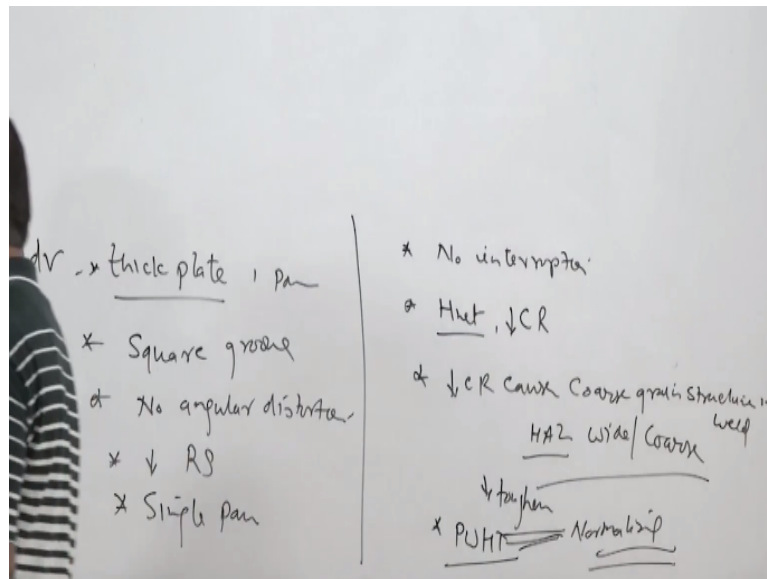 dv. * thick plate, pass
* Square groove
* No angular distortion
* ↓ RS
* Single pass
* No interruption
* Hnet, ↓CR
* ↓CR cause Coarse grain structure in
weld
HAZ wide/Coarse
↓ toughen
* PWHT = Normalizing